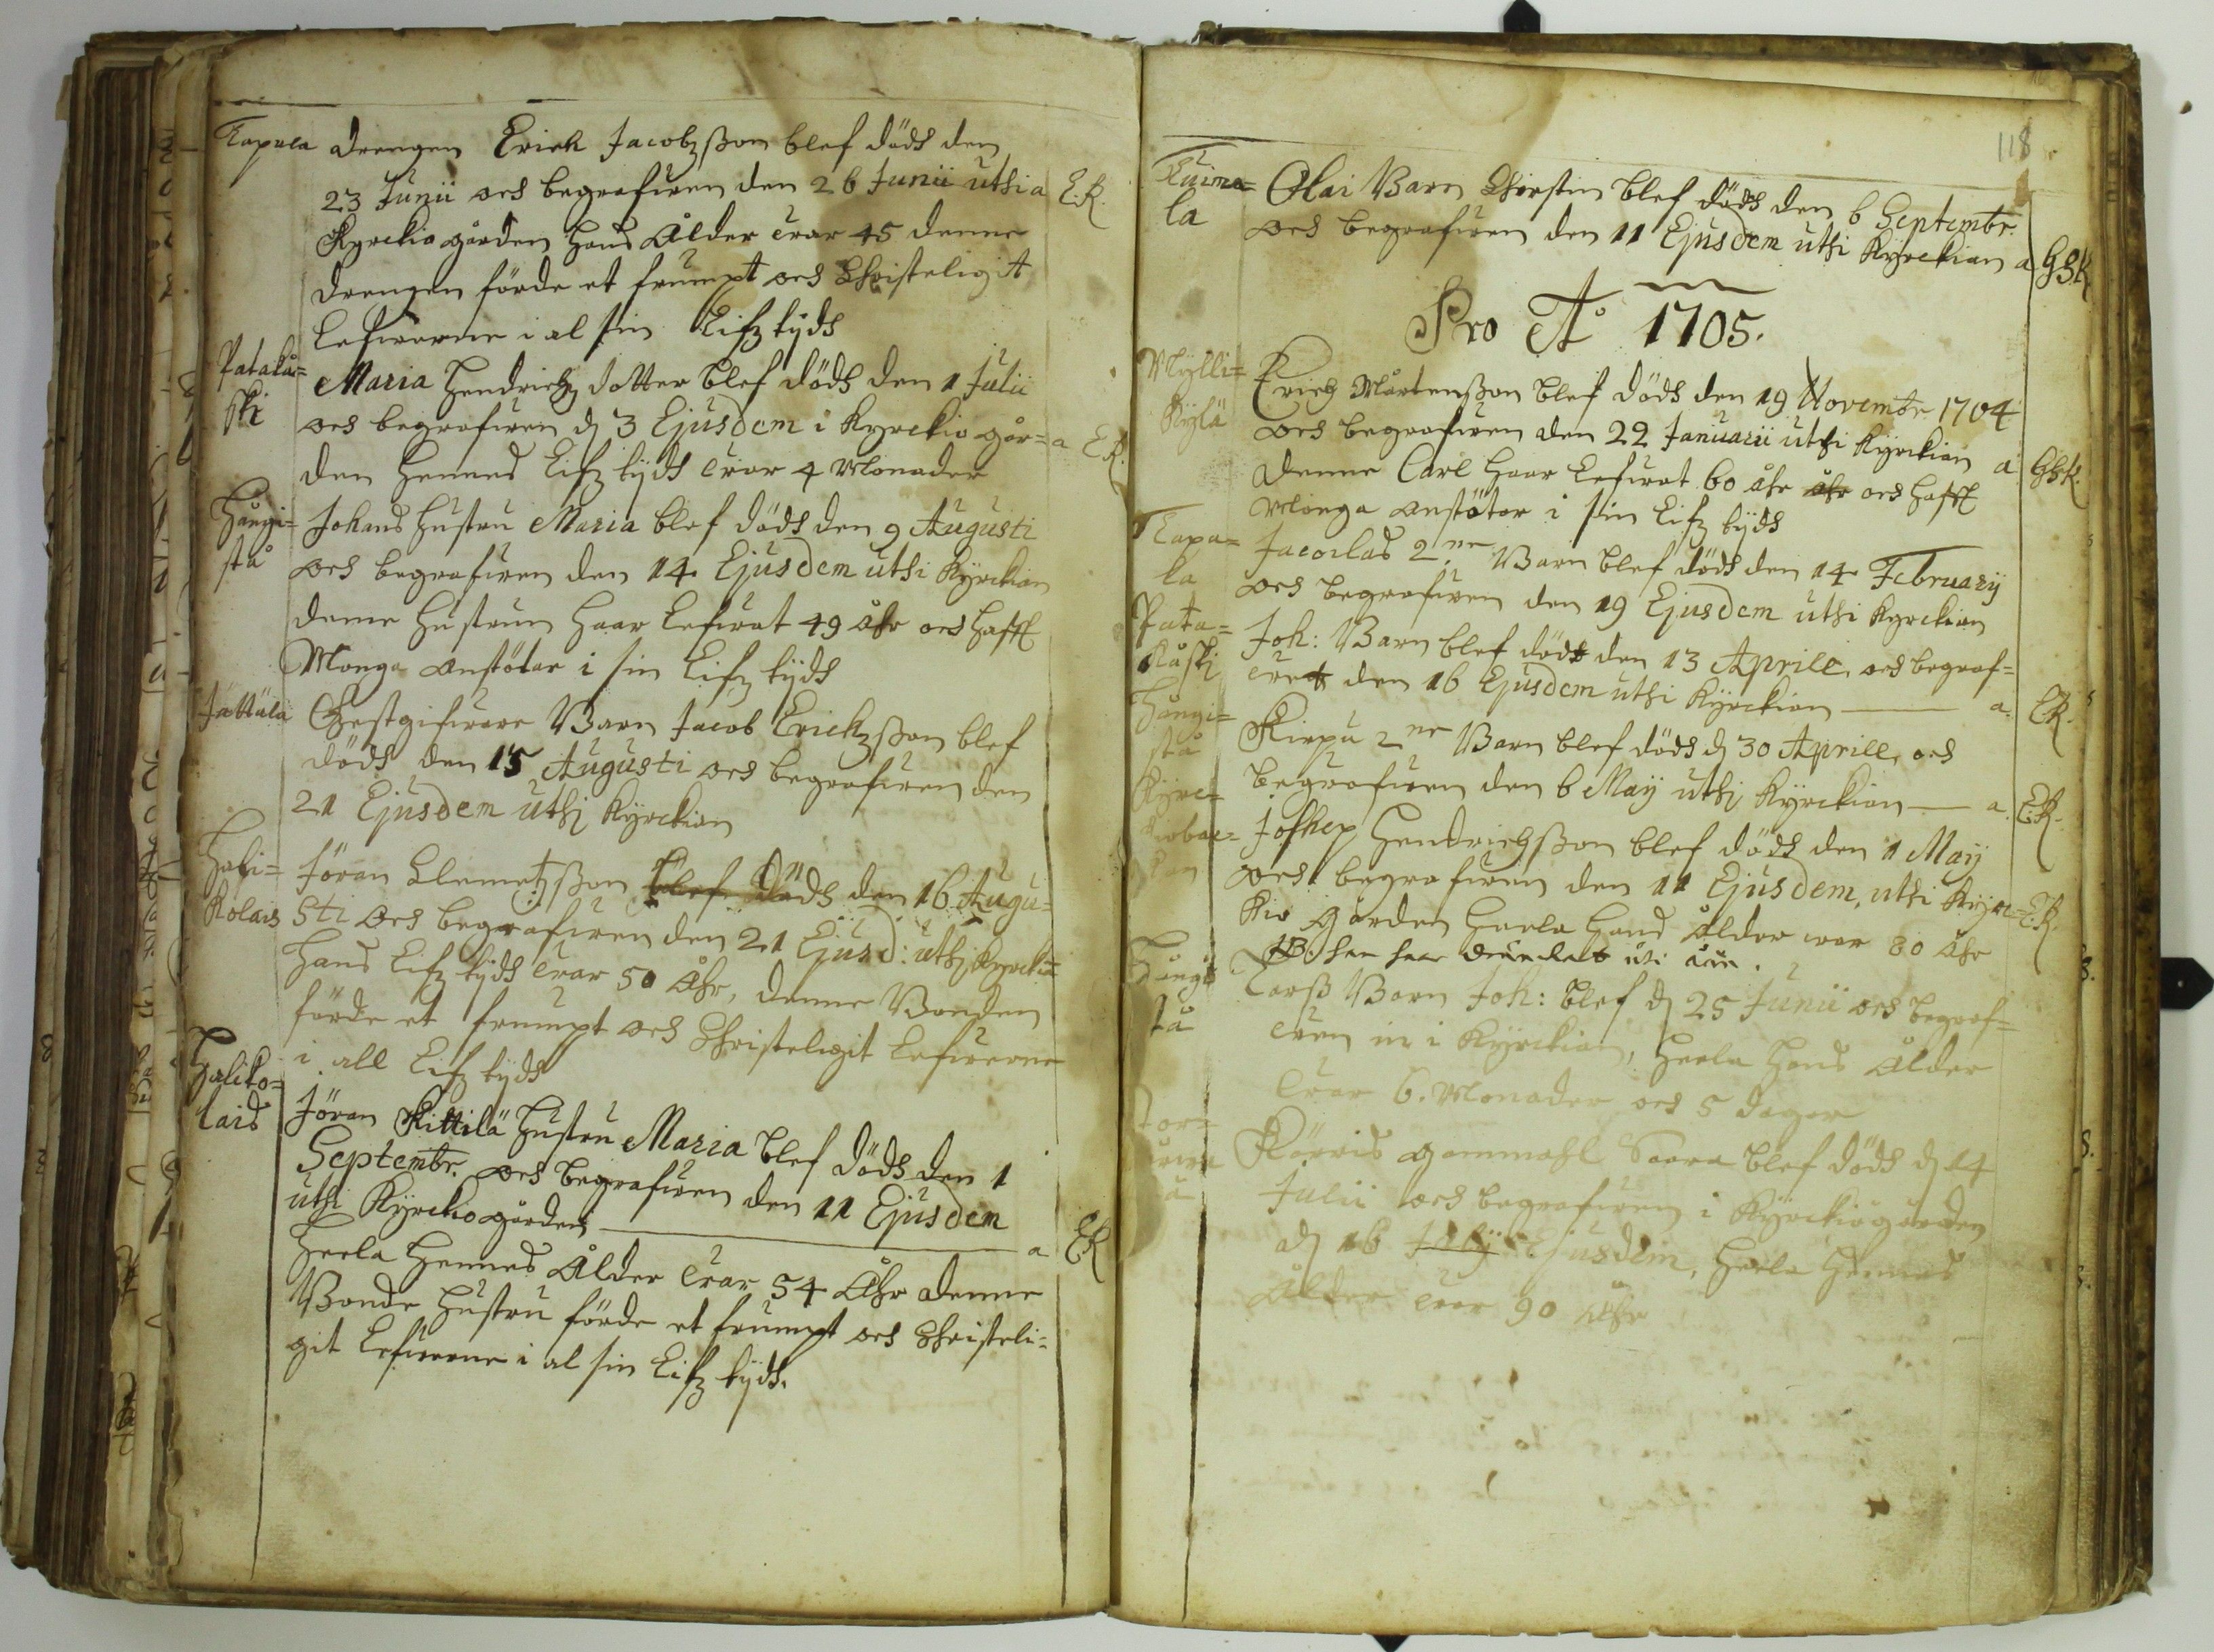 Tapala drengen Erich Jacobzßon blef dödh den
23 Junii och begrafwen den 26 Junii uthi a E.R.
Kyrckiogården hans Ålder war 45 denne
drengen förde et frumpt och Christeligit
Lefwerne i al sin Lifztijdh
Patakå=
ski
Maria Hendrichz dotter blef dödh den 1 Julii
och begrafwen d 3 Ejusdem i Kyrckio går= a E.R.
den hennes Lifztijdh war 4 Monader
Haugi=
stå
Johans hustru Maria blef dödh den 9 Augusti
och begrafwen den 14 Ejusdem uthi Kyrckian
denne hustrun haar Lefwat 49 Åhr och hafft
Monga anstötar i sin Lifztijdh
Jättälä Gestgifware Barn Jacob Erichzßon blef
dödh den 15 Augusti och begrafwen den
21 Ejusdem uthj Kyrckian
Hali=
Kolais
Jöran Clemetzßon blef dödh den 16 Augu=
sti och begrafwen den 21 Ejusd: uthj Kyrckian
hans Lifztijdh war 50 Åhr, denne Bonden
förde et frumpt och Christeligit Lefwerne
i all Lifztijdh
Haliko=
lais
Jöran Kittilä hustru Maria blef dödh den 1
Septembr. och begrafwen den 11 Ejusdem
uthi Kyrckiogården a ER
heela hennes Ålder war 54 Åhr denne
Bonde hustru förde et frumpt och Christeli=
git Lefwerne i al sin Lifztijdh.
118
Kuima=
la
Olai Barn Christin blef dödh den 6 Septembr.
och begrafwen den 11 Ejusdem uthi Kyrckian a GSK
Pro Aº 1705.
Mylli=
Kylä
Erich Mårtenßon blef dödh den 19 Novembr 1704
och begrafwen den 22 Januarii uthi Kyrckian a GSK.
denne Carl haar Lefwat 60 åhr åhr och hafft
Monga anstötar i sin Lifztijdh
Tapa=
la
Jacoilas 2ne Barn blef dödh den 14 February
och begrafwen den 19 Ejusdem uthi Kyrckian
Pata=
Kåski
Joh: Barn blef dödt den 13 Aprill, och begraf=
wet den 16 Ejusdem uthi Kyrckian a. ER.
Haugi=
stå
Kirpu 2ne Barn blef dödh d 30 Aprill, och
begrafwen den 6 May uthj Kyrckian a. ER.
Kyrc=
kiobac=
kan
Joshep Hendrichßon blef dödh den 1 May
och begrafwen den 11 Ejusdem, uthi Kyrc= ER.
kio gården heela hans Ålder war 80 Åhr
NB. han haar druncknat uti åån.
Haugi
stå
Larß Barn Joh: blef d 25 Junii och begraf=
wen in i Kyrckian, heela hans Ålder
war 6. Monader och 5 dagar
Körris gammahl Saara blef dödh d 14
Julii och begrafwen i Kyrckiogården
d 16 July Ejusdem, heela hennes
Ålder war 90 Åhr